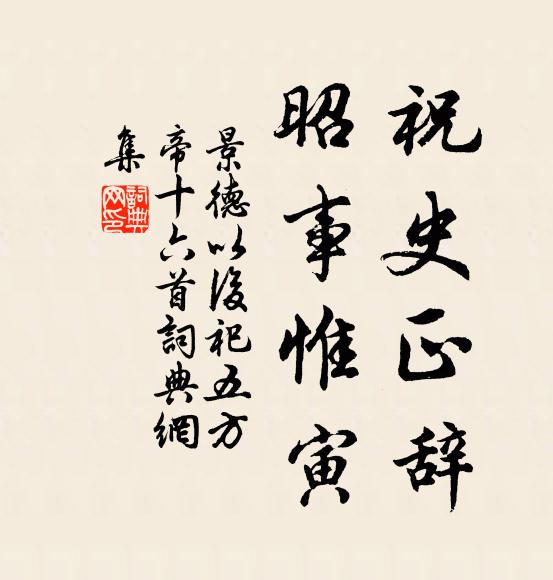 祝史正辞
昭事惟寅
景德以後祀五方
帝十六首詞典網
集
詞典网印